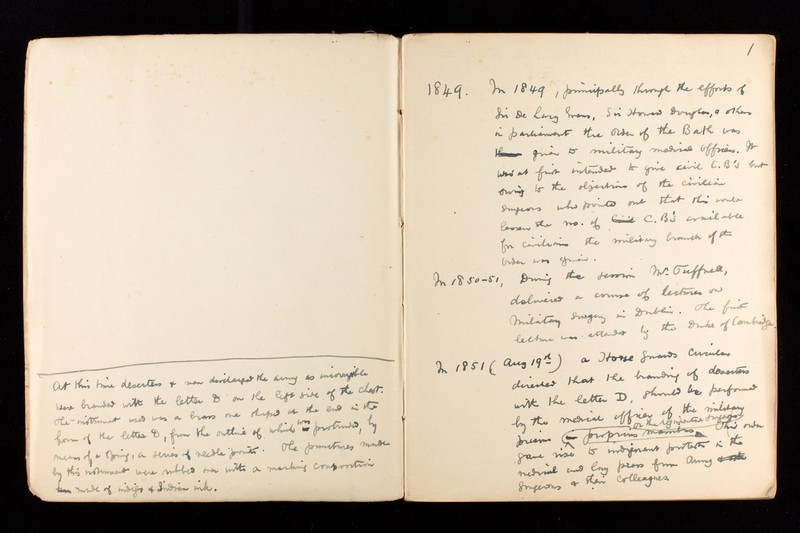 At this time deserters & men discharged the army as incorrigible
were branded with the letter D on the left side of the chest.
The instrument used was a brass one shaped at the end in the
form of the letter D, from the outline of which was protruded, by
means of a spring, a series of needle points. The punctures made
by this instrument were rubbed over with a marking composition
made of indigo & Indian ink.
1
1849. In 1849, principally through the efforts of
Sir De Lacy Evans, Sir Howard Douglas, & others
in parliament the Order of the Bath was
given to military medical officers. It
was at first intended to give civil C.B's but
owing to the objections of the civilian
surgeons who pointed out that this would
lessen the no. of C.B's available
for civilians the military branch of the
order was given.
In 1850-51, During the session Mr. Tuffnell,
delivered a course of lectures on
Military Surgery in Dublin. The first
lecture was attended by the Duke of Cambridge.
In 1851 (Aug 19th) a Horse Guards Circular
directed that the branding of deserters
with the letter D, should be performed
by the medical officers of the military
prisons propriis manibus or the regimental surgeons. This order
gave rise to indignant protests in the
medical and lay press from Army
surgeons & their colleagues